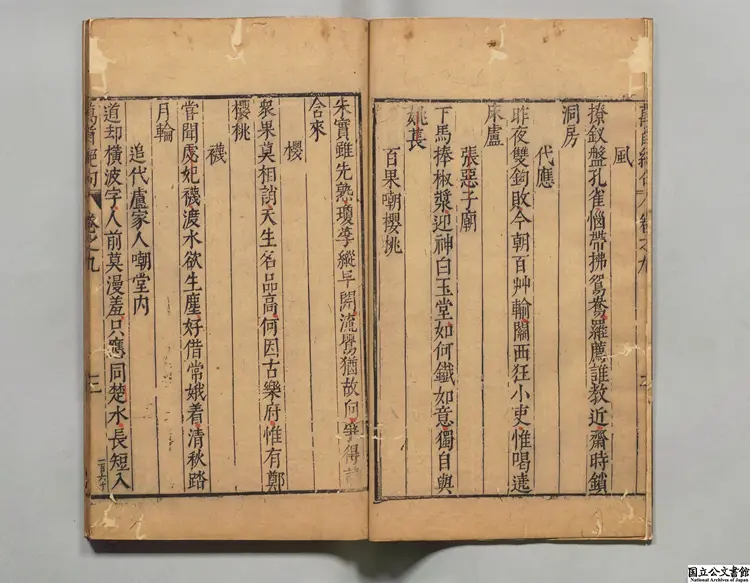 風
撩釵盤孔雀惱帶拂鴛鴦羅薦誰教近齋時鎖
洞房
代應
昨夜雙鉤敗今朝百艸輸關西狂小吏惟喝遶
牀盧
張惡子廟
下馬捧椒漿迎神白玉堂如何鐵如意獨自與
姚萇
百果嘲櫻桃
朱實雖先熟瓊莩縱早開流鶯猶故向爭得
含來
櫻
衆果莫相誚天生名品高何因古樂府惟有鄭
櫻桃
襪
嘗聞虙妃襪渡水欲生塵好借常娥着清秋踏
月輪
追代盧家人嘲堂内
道却橫波字人前莫漫羞只應同楚水長短入
萬首絕句 卷之九 三
一百六十
国立公文書館
National Archives of Japan